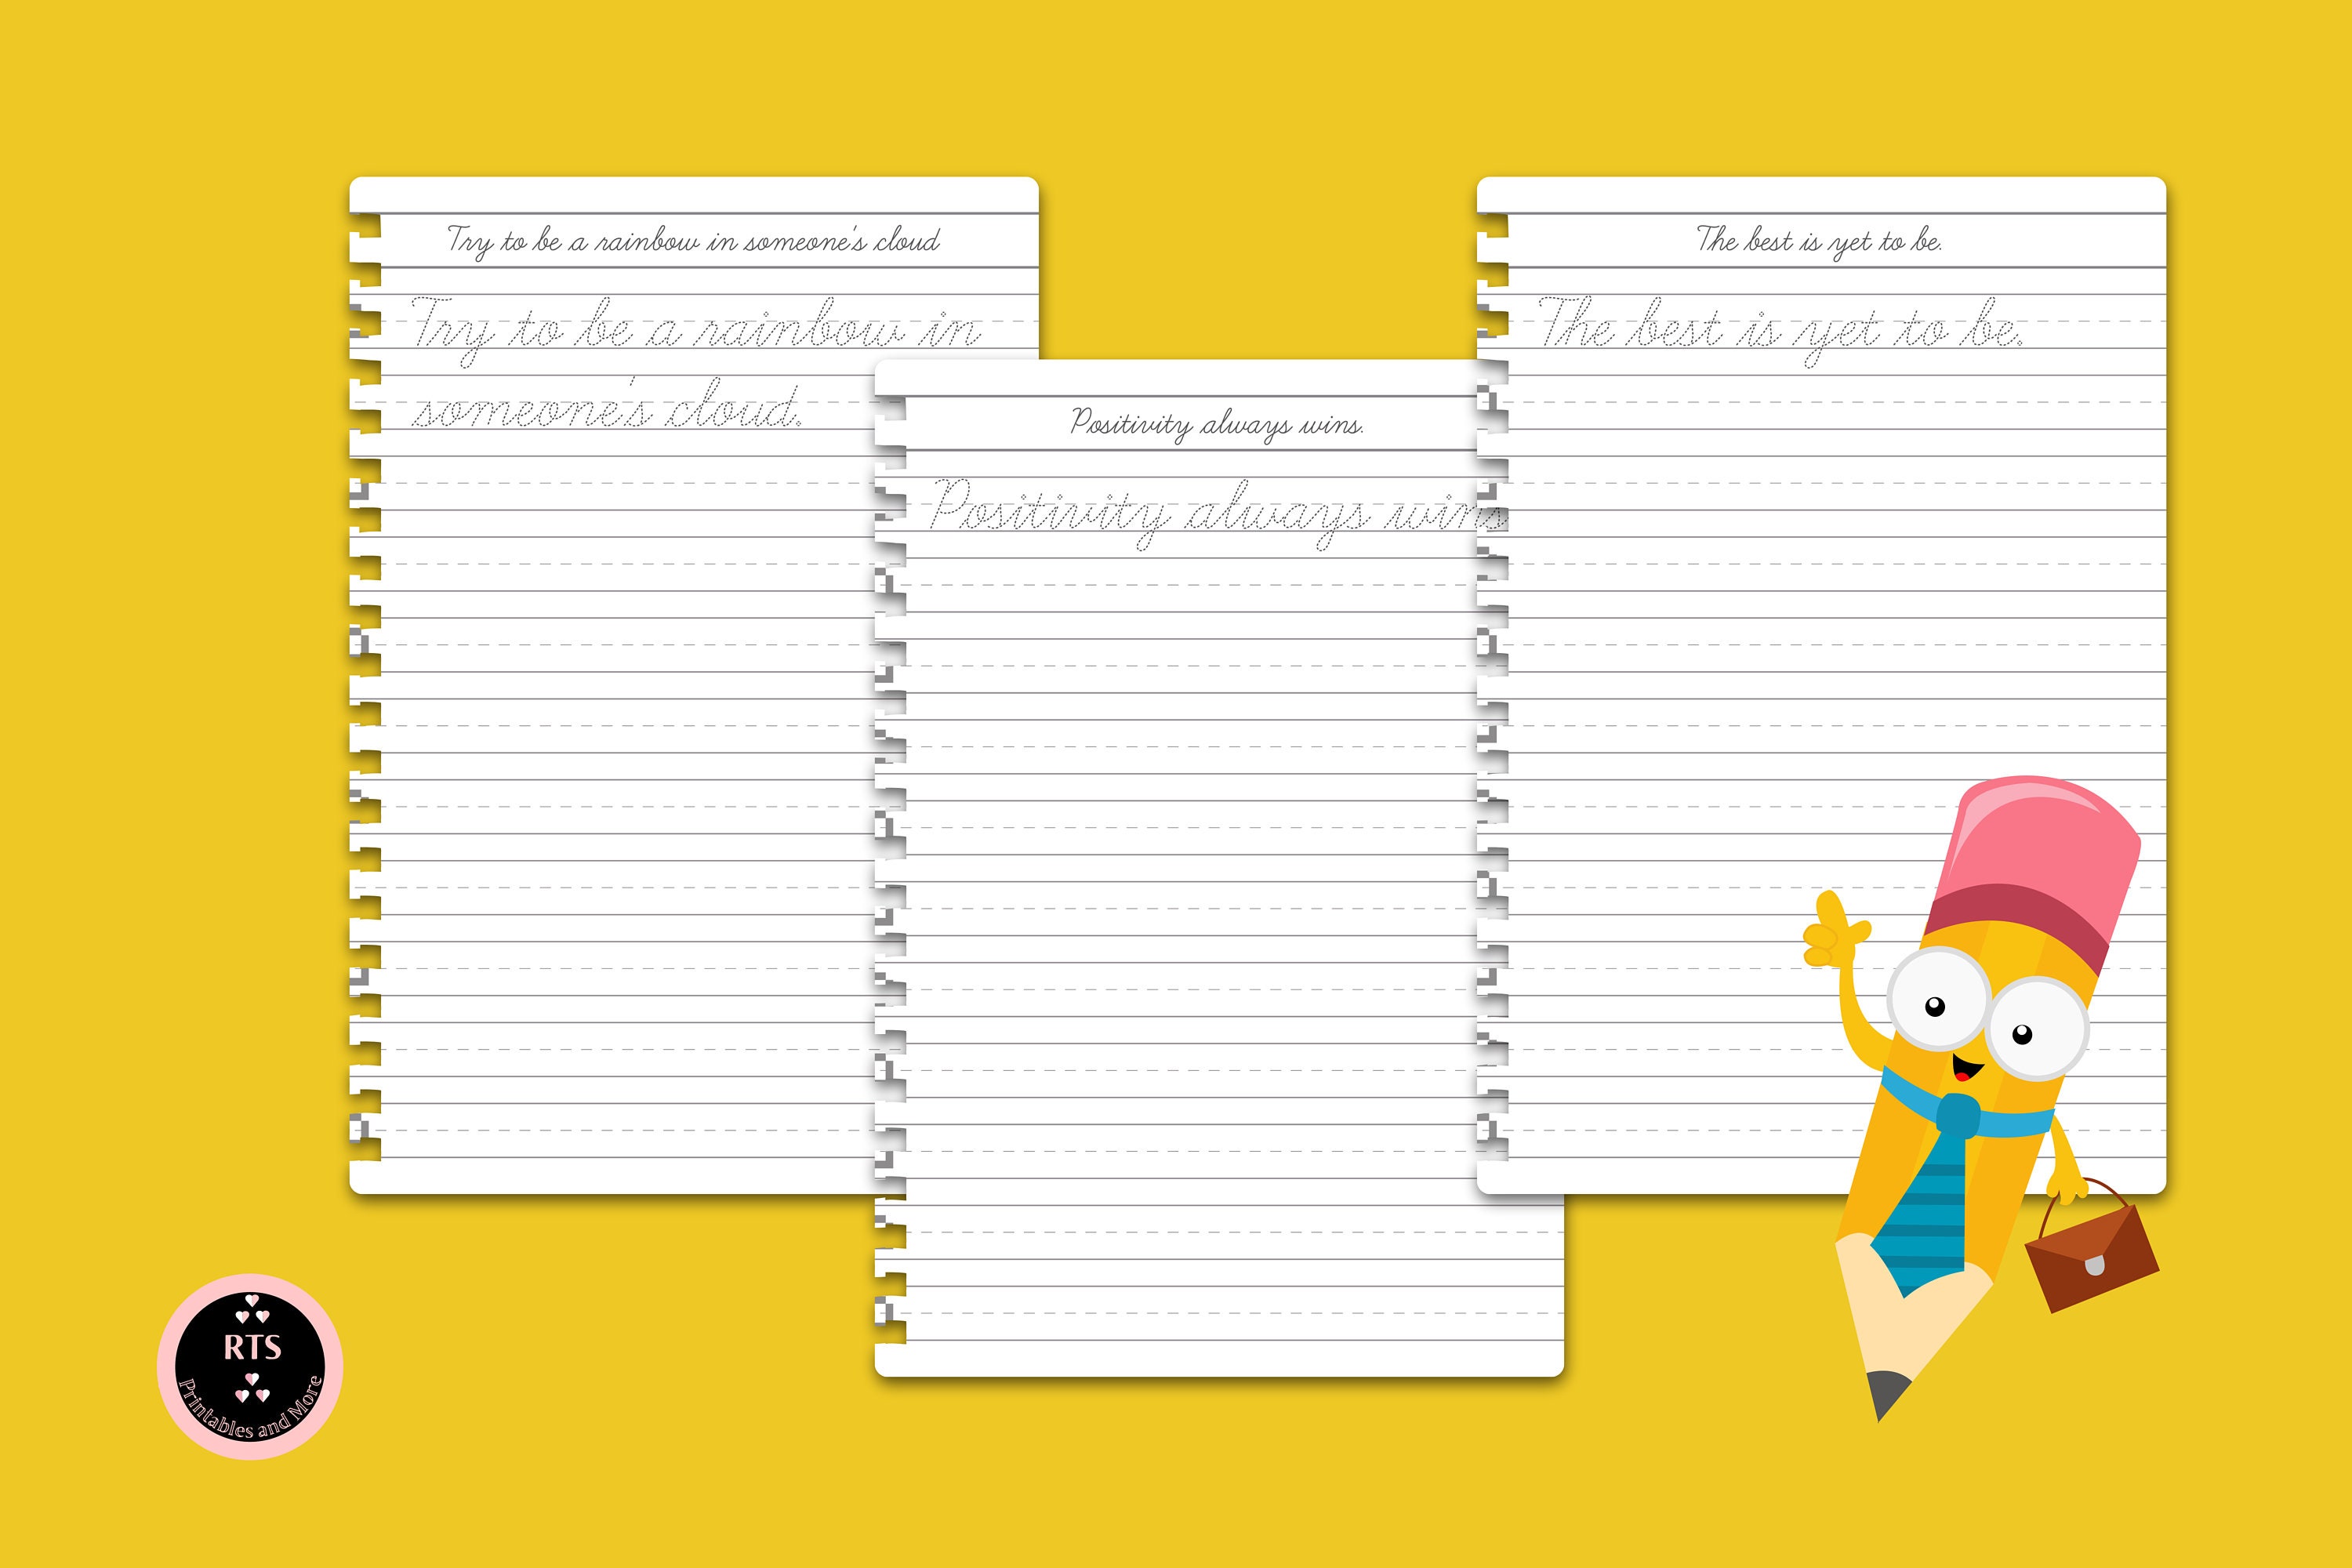 Try to be a rainbow in someone's cloud
Try to be a rainbow in
someone's cloud.
Positivity always wins.
Positivity always wins
The best is yet to be.
The best is yet to be.
RTS
Printables and More